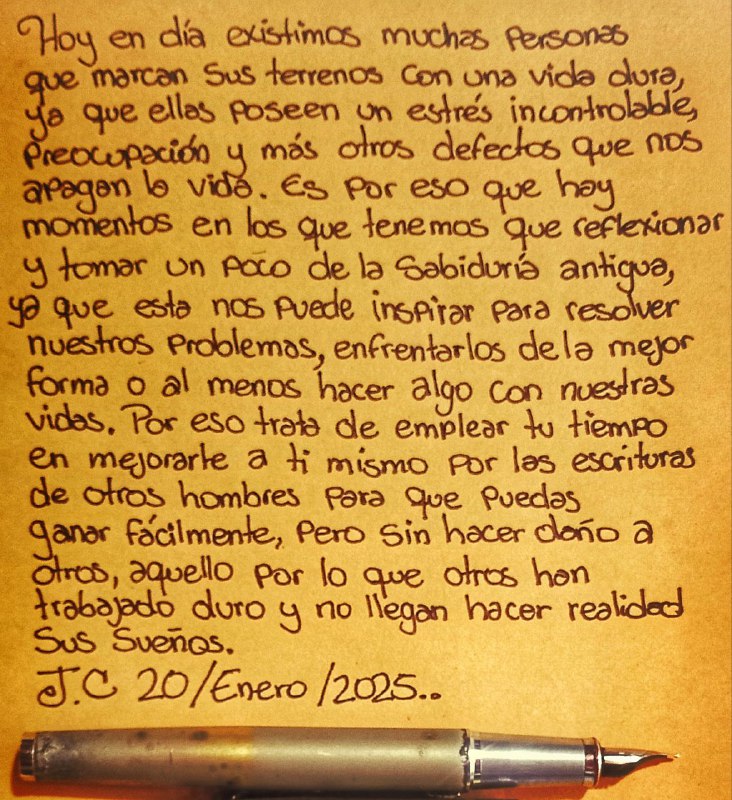 Hoy en día existimos muchas personas
que marcan sus terrenos con una vida dura,
ya que ellas poseen un estrés incontrolable,
preocupación y más otros defectos que nos
apagan la vida. Es por eso que hay
momentos en los que tenemos que reflexionar
y tomar un poco de la sabiduría antigua,
ya que esta nos puede inspirar para resolver
nuestros problemas, enfrentarlos de la mejor
forma o al menos hacer algo con nuestras
vidas. Por eso trata de emplear tu tiempo
en mejorarte a ti mismo por las escrituras
de otros hombres para que puedas
ganar fácilmente, pero sin hacer daño a
otros, aquello por lo que otros han
trabajado duro y no llegan hacer realidad
sus sueños.
J.C 20/Enero/2025..